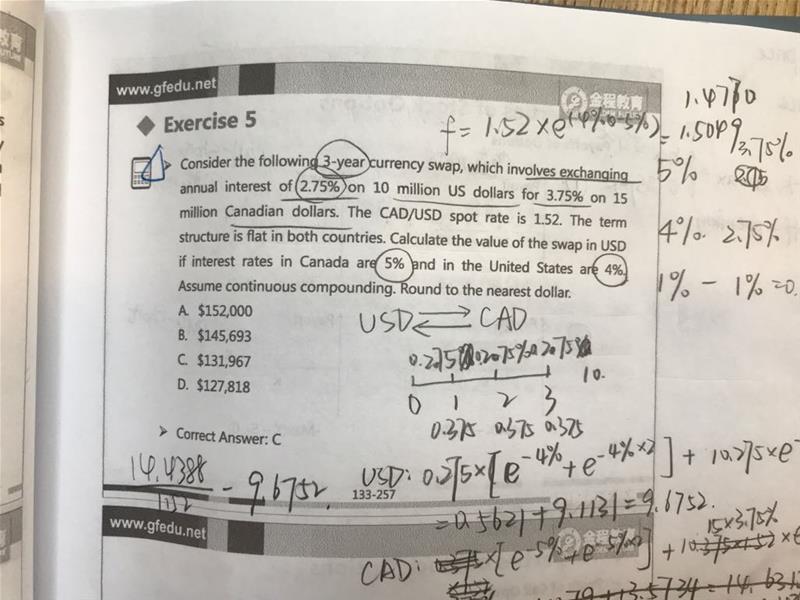 www.gfedu.net
金程教育
Exercise 5
f = 1.52 × e(4% - 5%) = 1.5049
1.4770
3.75%
5%
4%. 2.75%
1% - 1% = 0.
Consider the following 3-year currency swap, which involves exchanging
annual interest of 2.75% on 10 million US dollars for 3.75% on 15
million Canadian dollars. The CAD/USD spot rate is 1.52. The term
structure is flat in both countries. Calculate the value of the swap in USD
if interest rates in Canada are 5% and in the United States are 4%.
Assume continuous compounding. Round to the nearest dollar.
A. $152,000
B. $145,693
C. $131,967
D. $127,818
USD CAD
0.275
10.
0 1 2 3
0.375 0.375 0.375
Correct Answer: C
14.4388
1.52
- 9.6752
USD: 0.275×[e-4% + e-4%×2] + 10.275×e
133-257
= 0.5621 + 9.1131 = 9.6752.
www.gfedu.net
金程教育
15×3.75%
CAD: ×[e-5% + e-5%×2] + 10.375×1.52 ×e
+13.5734 =